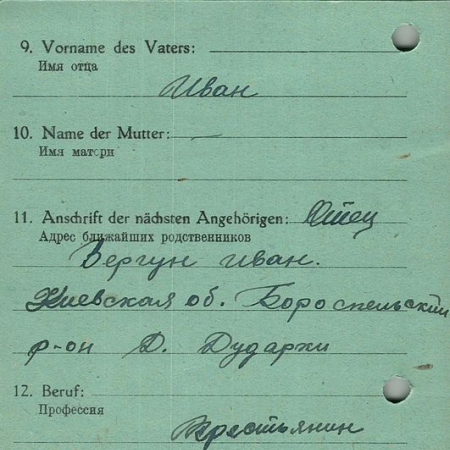 9. Vorname des Vaters:
Имя отца
Иван
10. Name der Mutter: —
Имя матери
11. Anschrift der nächsten Angehörigen: Отец
Адрес ближайших родственников
Вергун Иван.
Киевская об. Бороспельский
р-он Д. Дударки
12. Beruf:
Профессия
Крестьянин